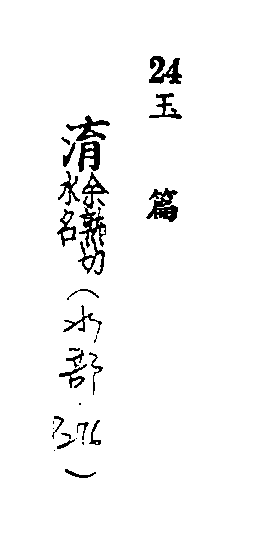 24 玉篇
淯余鞠切水名(水部 P276)